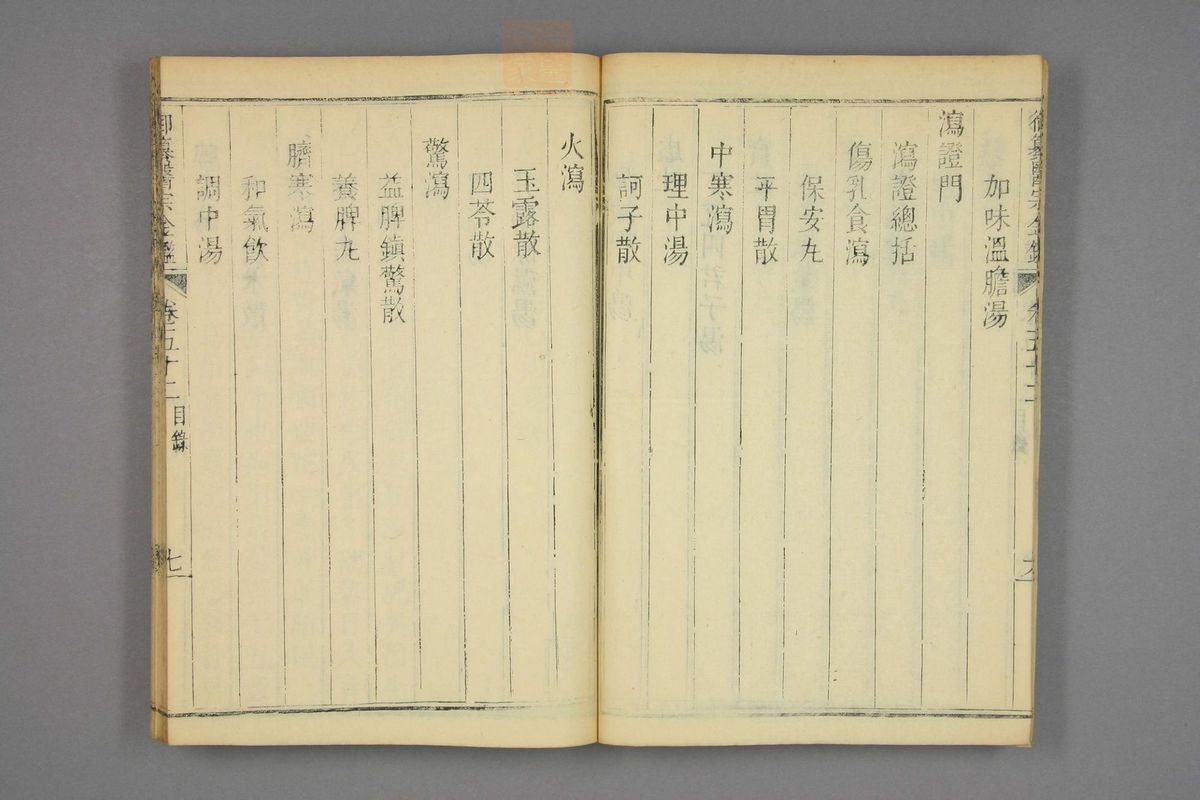 御纂醫宗金鑑 卷五十二
加味溫膽湯
瀉證門
瀉證總括
傷乳食瀉
保安丸
平胃散
中寒瀉
理中湯
訶子散
火瀉
玉露散
四苓散
驚瀉
益脾鎮驚散
養脾丸
臍寒瀉
和氣飲
調中湯
御纂醫宗金鑑 卷五十二 目錄 七